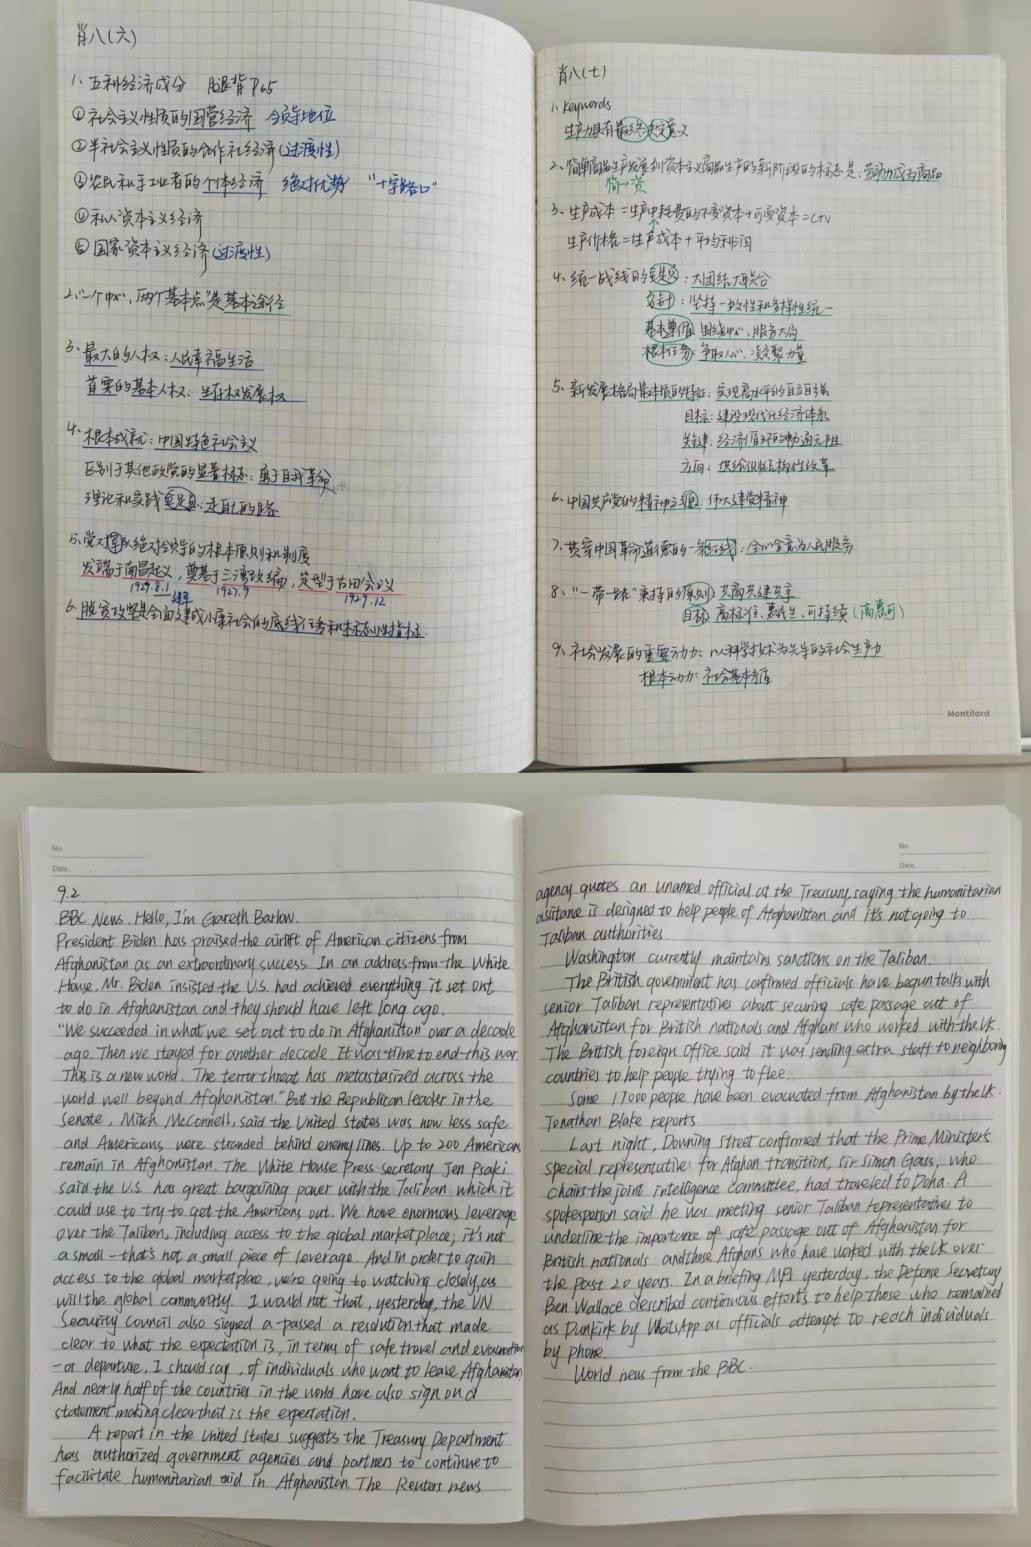 肖八(六)
1、五种经济成分 腿背P65
①社会主义性质的国营经济 领导地位
②半社会主义性质的合作社经济(过渡性)
③农民和手工业者的个体经济 绝对优势 "十字路口"
④私人资本主义经济
⑤国家资本主义经济(过渡性)
2、"一个中心、两个基本点"是基本途径
3、最大的人权:人民幸福生活
首要的基本人权:生存权发展权
4、根本成就:中国特色社会主义
区别于其他政党的显著标志:勇于自我革命
理论和实践 :走自己的路
5、党对军队绝对领导的根本原则和制度
发端于南昌起义,奠基于三湾改编,定型于古田会议
1927.9 1929.12
6、脱贫攻坚是全面建成小康社会的底线任务和标志性指标.
肖八(七)
1、Keywords
生产力具有最终决定意义
2、简单商品生产发展到资本主义商品生产的新阶段的标志是:劳动力成为商品
简→资
3、生产成本=生产中耗费的不变资本+可变资本=c+v
生产价格=生产成本+平均利润
4、统一战线的 :大团结大联合
方针:坚持一致性和多样性统一
基本 :围绕中心、服务大局
根本任务:争取人心、凝聚力量
5、新发展格局最本质的特征:实现高水平的自立自强
目标:建设现代化经济体系
关键:经济循环的畅通无阻
方向:供给侧结构性改革
6、中国共产党的精神之源:伟大建党精神
7、贯穿中国革命道德的一条红线:全心全意为人民服务
8、"一带一路"秉持的原则:共商共建共享
目标:高标准、惠民生、可持续(高惠可)
9、社会发展的重要动力:以科学技术为先导的社会生产力
根本动力:社会基本矛盾
Montilord
No.
Date.
9.2
BBC News. Hello, I'm Gareth Barlow.
President Biden has praised the airlift of American citizens from
Afghanistan as an extraordinary success. In an address from the White
House. Mr. Biden insisted the U.S. had achieved everything it set out
to do in Afghanistan and they should have left long ago.
"We succeeded in what we set out to do in Afghanistan over a decade
ago. Then we stayed for another decade. It was time to end this war.
This is a new world. The terror threat has metastasized across the
world well beyond Afghanistan." But the Republican leader in the
Senate, Mitch McConnell, said the United States was now less safe
and Americans were stranded behind enemy lines. Up to 200 Americans
remain in Afghanistan. The White House Press secretary Jen Psaki
said the U.S. has great bargaining power with the Taliban which it
could use to try to get the Americans out. We have enormous leverage
over the Taliban, including access to the global marketplace; it's not
a small - that's not a small piece of leverage. And in order to gain
access to the global marketplace, we're going to watching closely, as
will the global community. I would not that, yesterday, the UN
Security council also signed a - passed a resolution that made
clear to what the expectation is, in terms of safe travel and evacuation
- or departure, I should say, of individuals who want to leave Afghanistan.
And nearly half of the countries in the world have also sign on a
statement making clear that is the expectation.
A report in the United States suggests the Treasury Department
has authorized government agencies and partners to continue to
facilitate humanitarian aid in Afghanistan. The Reuters news
No.
Date.
agency quotes an unamed official at the Treasury, saying the humanitarian
assitane is designed to help people of Afghanistan and it's not going to
Taliban authorities.
Washington currently maintains sanctions on the Taliban.
The British government has confirmed officials have begun talks with
senior Taliban representatives about securing safe passage out of
Afghanistan for British nationals and Afghans who worked with the UK.
The British foreign Office said it was sending extra staff to neighboring
countries to help people trying to flee.
Some 17000 people have been evacuated from Afghanistan by the UK.
Jonathan Blake reports.
Last night, Downing Street confirmed that the Prime Minister's
special representative for Afghan transition, Sir Simon Gass, who
chairs the joint intelligence committee, had traveled to Doha. A
spokesperson said he was meeting senior Taliban representatives to
underline the importance of safe passage out of Afghanistan for
British nationals and those Afghans who have worked with the UK over
the past 20 years. In a briefing MPs yesterday, the Defense Secretary
Ben Wallace described continuous efforts to help those who remained
as Dunkirk by WhatsApp as officials attempt to reach individuals
by phone.
World news from the BBC.